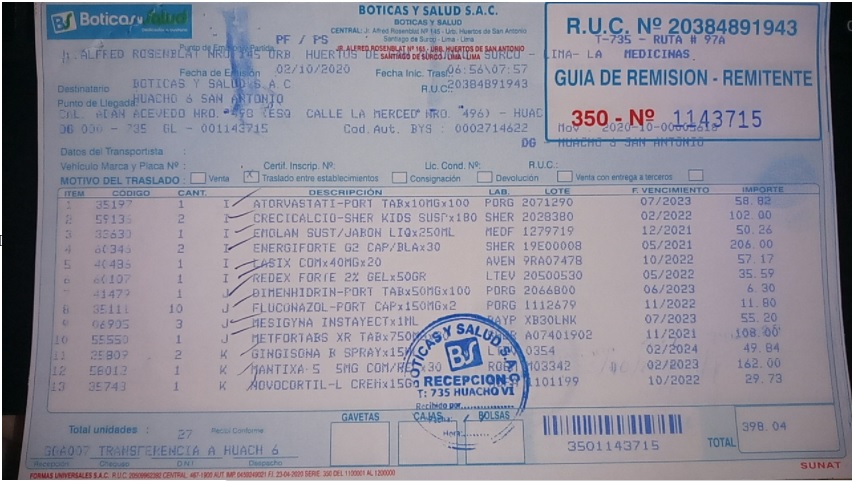 BS Boticas y Salud
BOTICAS Y SALUD S.A.C.
BOTICAS Y SALUD
CENTRAL: Jr. Alfred Rosenblat Nº 145 - Urb. Huertos de San Antonio
Santiago de Surco - Lima - Lima
JR. ALFRED ROSENBLAT Nº 165 - URB. HUERTOS DE SAN ANTONIO
SANTIAGO DE SURCO - LIMA - LIMA
R.U.C. Nº 20384891943
T-735 - RUTA # 97A
MEDICINAS
GUIA DE REMISION - REMITENTE
350 - Nº 1143715
PF / PS
Punto de Emisión/Partida
J. ALFRED ROSENBLAT NRO.145 URB HUERTOS DE SURCO - LIMA- LA
Fecha de Emisión 02/10/2020 Fecha Inic. Tras. 06:56\07:57
Destinatario BOTICAS Y SALUD S.A.C R.U.C. 20384891943
Punto de Llegada HUACHO 6 SAN ANTONIO
CAL. ADAN ACEVEDO NRO. 498 (ESQ CALLE LA MERCED NRO. 496) - HUAC
DG 000 - 735 GL - 001143715 Cod.Aut. BYS : 0002714622
DG - HUACHO 6 SAN ANTONIO
Datos del Transportista :
Vehículo Marca y Placa Nº : Certif. Inscrip. Nº: Lic. Cond. Nº: R.U.C.:
MOTIVO DEL TRASLADO Venta X Traslado entre establecimientos Consignación Devolución Venta con entrega a terceros
ITEM CÓDIGO CANT. DESCRIPCIÓN LAB. LOTE F. VENCIMIENTO IMPORTE
1 35197 1 I ATORVASTATI-PORT TABx10MGx100 PORG 2071290 07/2023 58.82
2 59135 2 I CRECICALCIO-SHER KIDS SUSPx180 SHER 2028380 02/2022 102.00
3 1 I EMOLAN SUST/JABON LIQx250ML MEDF 1279719 12/2021 50.26
4 60346 2 I ENERGIFORTE G2 CAP/BLAx30 SHER 19E00008 05/2021 206.00
5 40486 1 I LASIX COMx40MGx20 AVEN 9RA0747B 10/2022 57.17
6 60107 1 I REDEX FORTE 2% GELx50GR LTEV 20500530 05/2022 35.59
41479 1 J DIMENHIDRIN-PORT TABx50MGx100 PORG 2066800 06/2023 6.30
8 35111 10 J FLUCONAZOL-PORT CAPx150MGx2 PORG 1112679 11/2022 11.80
9 06905 3 J MESIGYNA INSTAYECTx1ML BAYP XB30LHK 07/2023 55.20
10 55550 1 J METFORTABS XR TABx750M A07401902 11/2021 108.00
11 35809 2 K GINGISONA B SPRAYx15M 0354 02/2024 49.84
12 58012 1 K MANTIXA 5 5MG COM/RE x30 M03342 02/2023 162.00
13 35743 1 K NOVOCORTIL-L CREMx15G 1101199 10/2022 29.73
BOTICAS Y SALUD S.A.C.
BS
RECEPCION
T: 735 HUACHO VI
Recibido por
Hora:
GAVETAS CAJAS BOLSAS
Total unidades : 27 Recibí Conforme
3501143715
TOTAL 398.04
SGA007 TRANSFERENCIA A HUACH 6
Recepción Chequeo DNI Despacho
SUNAT